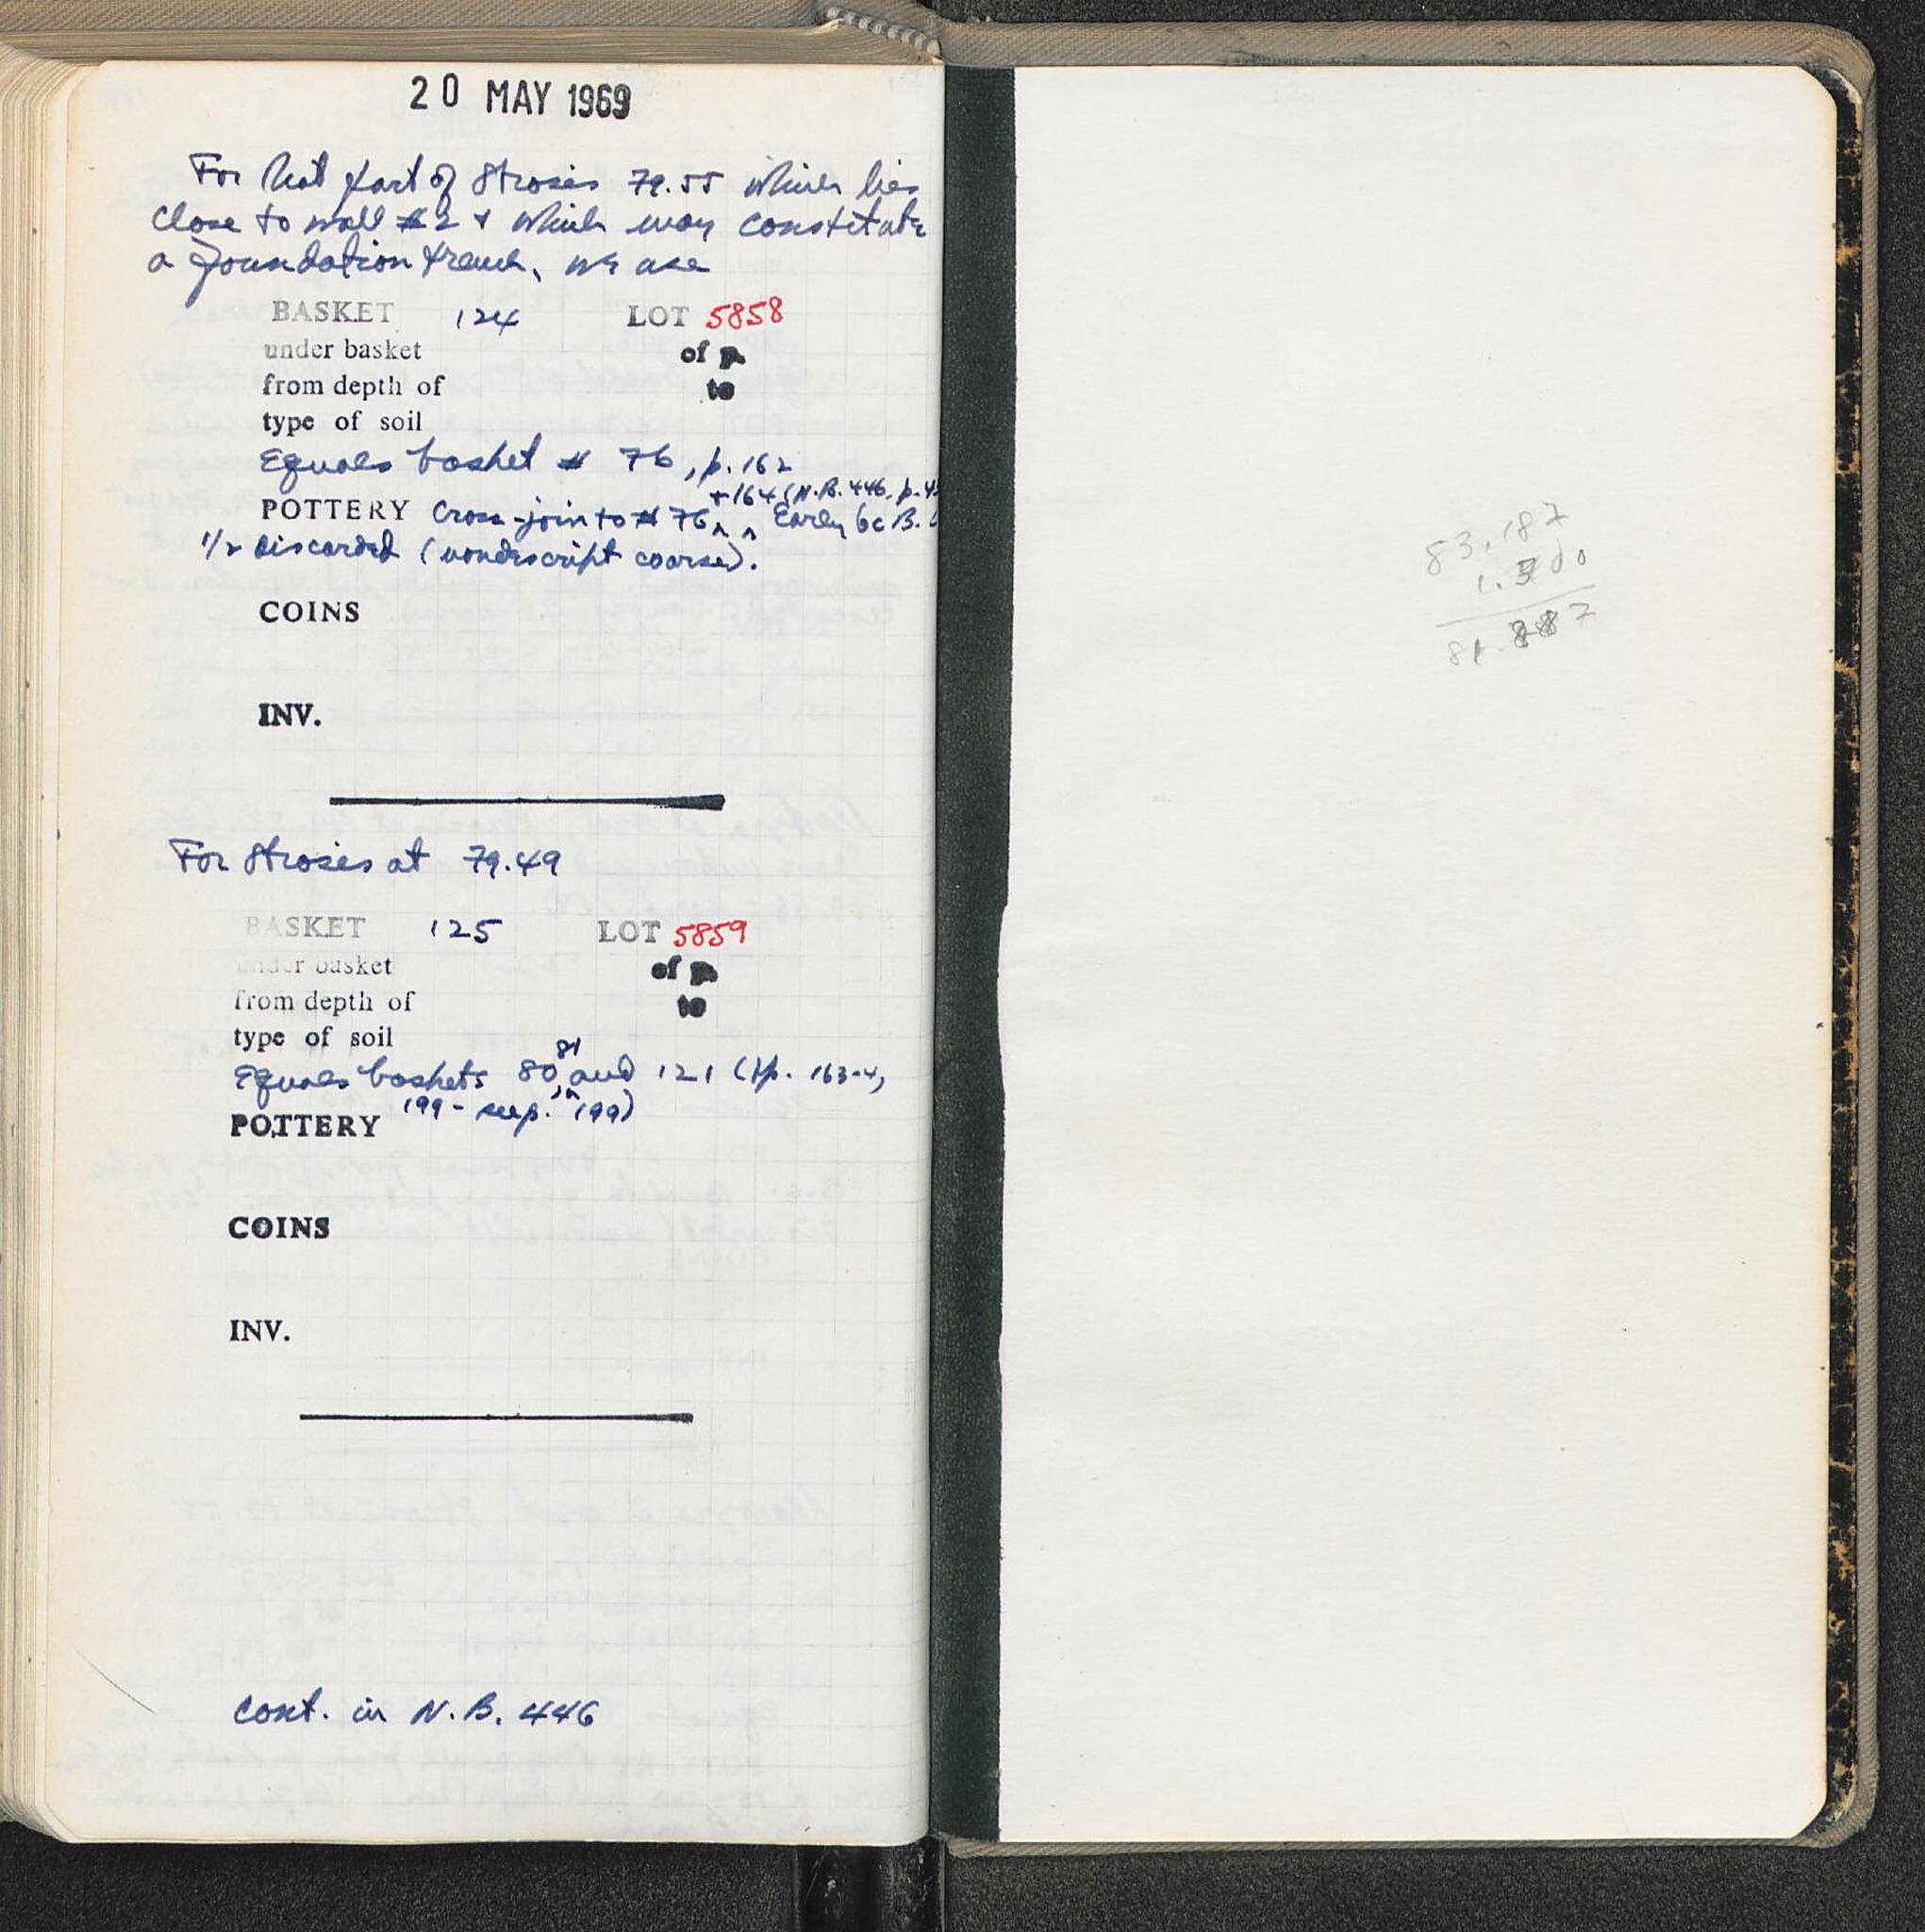 20 MAY 1969
For that part of stroses 79.55 which lies
close to wall #2 & which may constitute
a foundation trench, we use
BASKET 124 LOT 5858
under basket of p.
from depth of to
type of soil
Equals basket # 76, p. 162
+ 164 (N.B. 446, p.
POTTERY Cross-join to # 76 Early 6c B.
1/2 discarded (nondescript coarse).
COINS
INV.
For stroses at 79.49
BASKET 125 LOT 5859
under basket of p.
from depth of to
type of soil
81
Equals baskets 80, and 121 (pp. 163-4,
199 - see p. 199)
POTTERY
COINS
INV.
cont. in N.B. 446
83.187
1.300